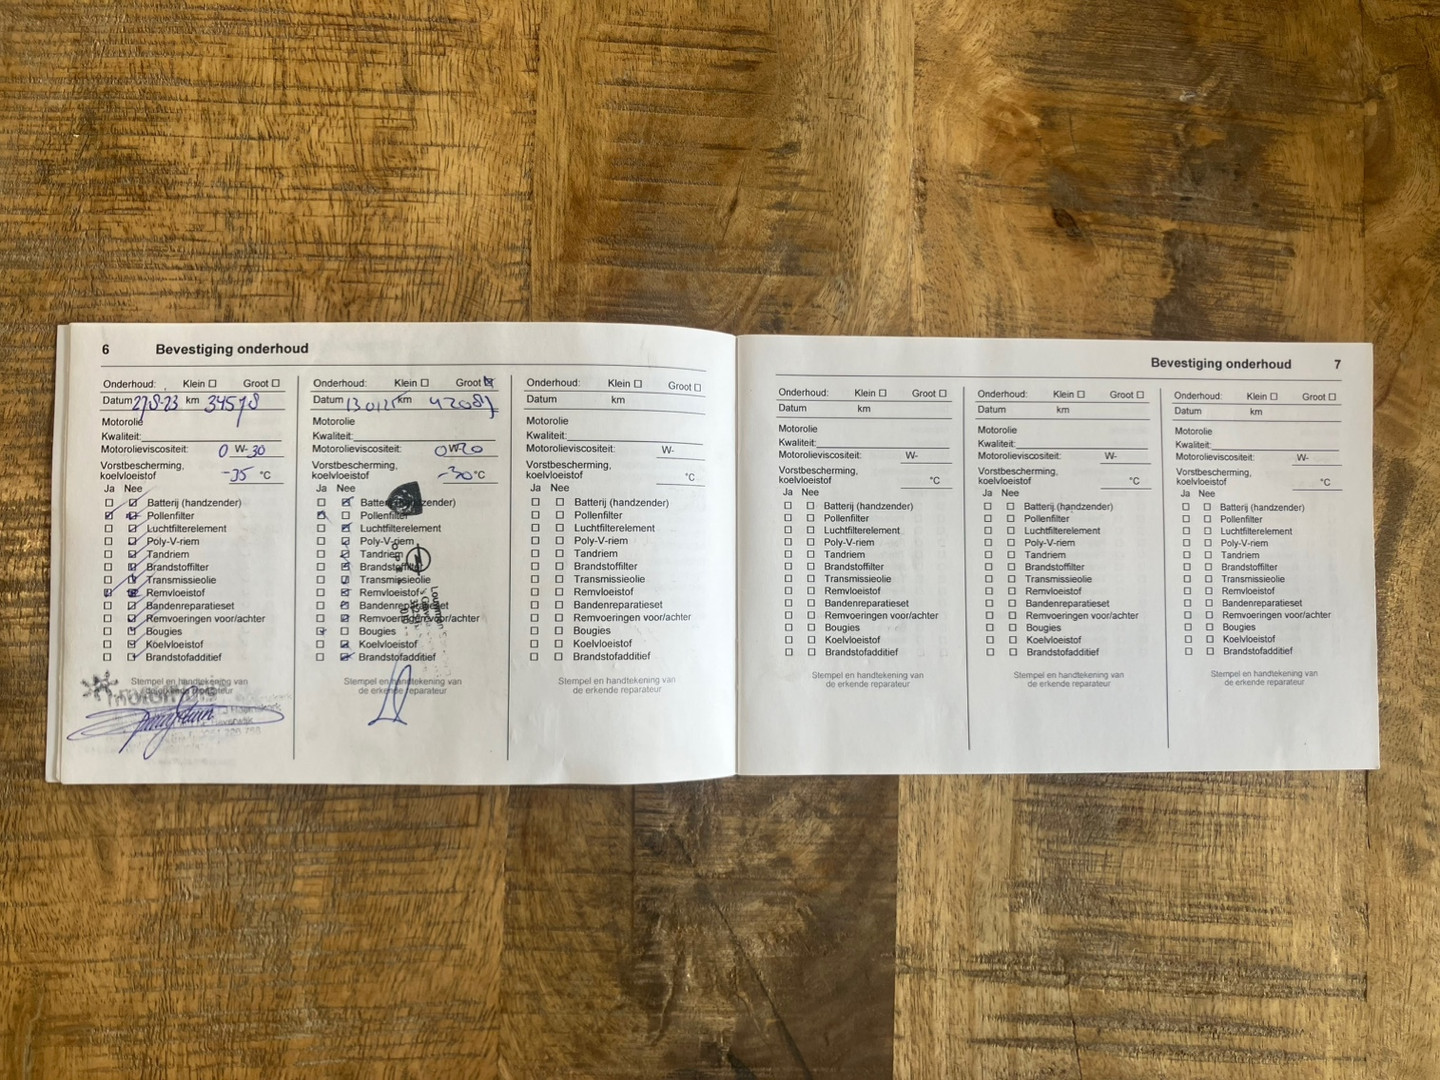 6 Bevestiging onderhoud
Onderhoud: Klein ☐ Groot ☐
Datum 27-8-23 km 34578
Motorolie
Kwaliteit:
Motorolieviscositeit: 0 W- 30
Vorstbescherming,
koelvloeistof -35 °C
Ja Nee
Batterij (handzender)
Pollenfilter
Luchtfilterelement
Poly-V-riem
Tandriem
Brandstoffilter
Transmissieolie
Remvloeistof
Bandenreparatieset
Remvoeringen voor/achter
Bougies
Koelvloeistof
Brandstofadditief
Stempel en handtekening van
de erkende reparateur
Onderhoud: Klein ☐ Groot ☒
Datum 13 01 25 km
Motorolie
Kwaliteit:
Motorolieviscositeit: 0 W- 20
Vorstbescherming,
koelvloeistof -30 °C
Ja Nee
Batterij (handzender)
Pollenfilter
Luchtfilterelement
Poly-V-riem
Tandriem
Brandstoffilter
Transmissieolie
Remvloeistof
Bandenreparatieset
Remvoeringen voor/achter
Bougies
Koelvloeistof
Brandstofadditief
Stempel en handtekening van
de erkende reparateur
Onderhoud: Klein ☐ Groot ☐
Datum km
Motorolie
Kwaliteit:
Motorolieviscositeit: W-
Vorstbescherming,
koelvloeistof °C
Ja Nee
Batterij (handzender)
Pollenfilter
Luchtfilterelement
Poly-V-riem
Tandriem
Brandstoffilter
Transmissieolie
Remvloeistof
Bandenreparatieset
Remvoeringen voor/achter
Bougies
Koelvloeistof
Brandstofadditief
Stempel en handtekening van
de erkende reparateur
Bevestiging onderhoud 7
Onderhoud: Klein ☐ Groot ☐
Datum km
Motorolie
Kwaliteit:
Motorolieviscositeit: W-
Vorstbescherming,
koelvloeistof °C
Ja Nee
Batterij (handzender)
Pollenfilter
Luchtfilterelement
Poly-V-riem
Tandriem
Brandstoffilter
Transmissieolie
Remvloeistof
Bandenreparatieset
Remvoeringen voor/achter
Bougies
Koelvloeistof
Brandstofadditief
Stempel en handtekening van
de erkende reparateur
Onderhoud: Klein ☐ Groot ☐
Datum km
Motorolie
Kwaliteit:
Motorolieviscositeit: W-
Vorstbescherming,
koelvloeistof °C
Ja Nee
Batterij (handzender)
Pollenfilter
Luchtfilterelement
Poly-V-riem
Tandriem
Brandstoffilter
Transmissieolie
Remvloeistof
Bandenreparatieset
Remvoeringen voor/achter
Bougies
Koelvloeistof
Brandstofadditief
Stempel en handtekening van
de erkende reparateur
Onderhoud: Klein ☐ Groot ☐
Datum km
Motorolie
Kwaliteit:
Motorolieviscositeit: W-
Vorstbescherming,
koelvloeistof °C
Ja Nee
Batterij (handzender)
Pollenfilter
Luchtfilterelement
Poly-V-riem
Tandriem
Brandstoffilter
Transmissieolie
Remvloeistof
Bandenreparatieset
Remvoeringen voor/achter
Bougies
Koelvloeistof
Brandstofadditief
Stempel en handtekening van
de erkende reparateur